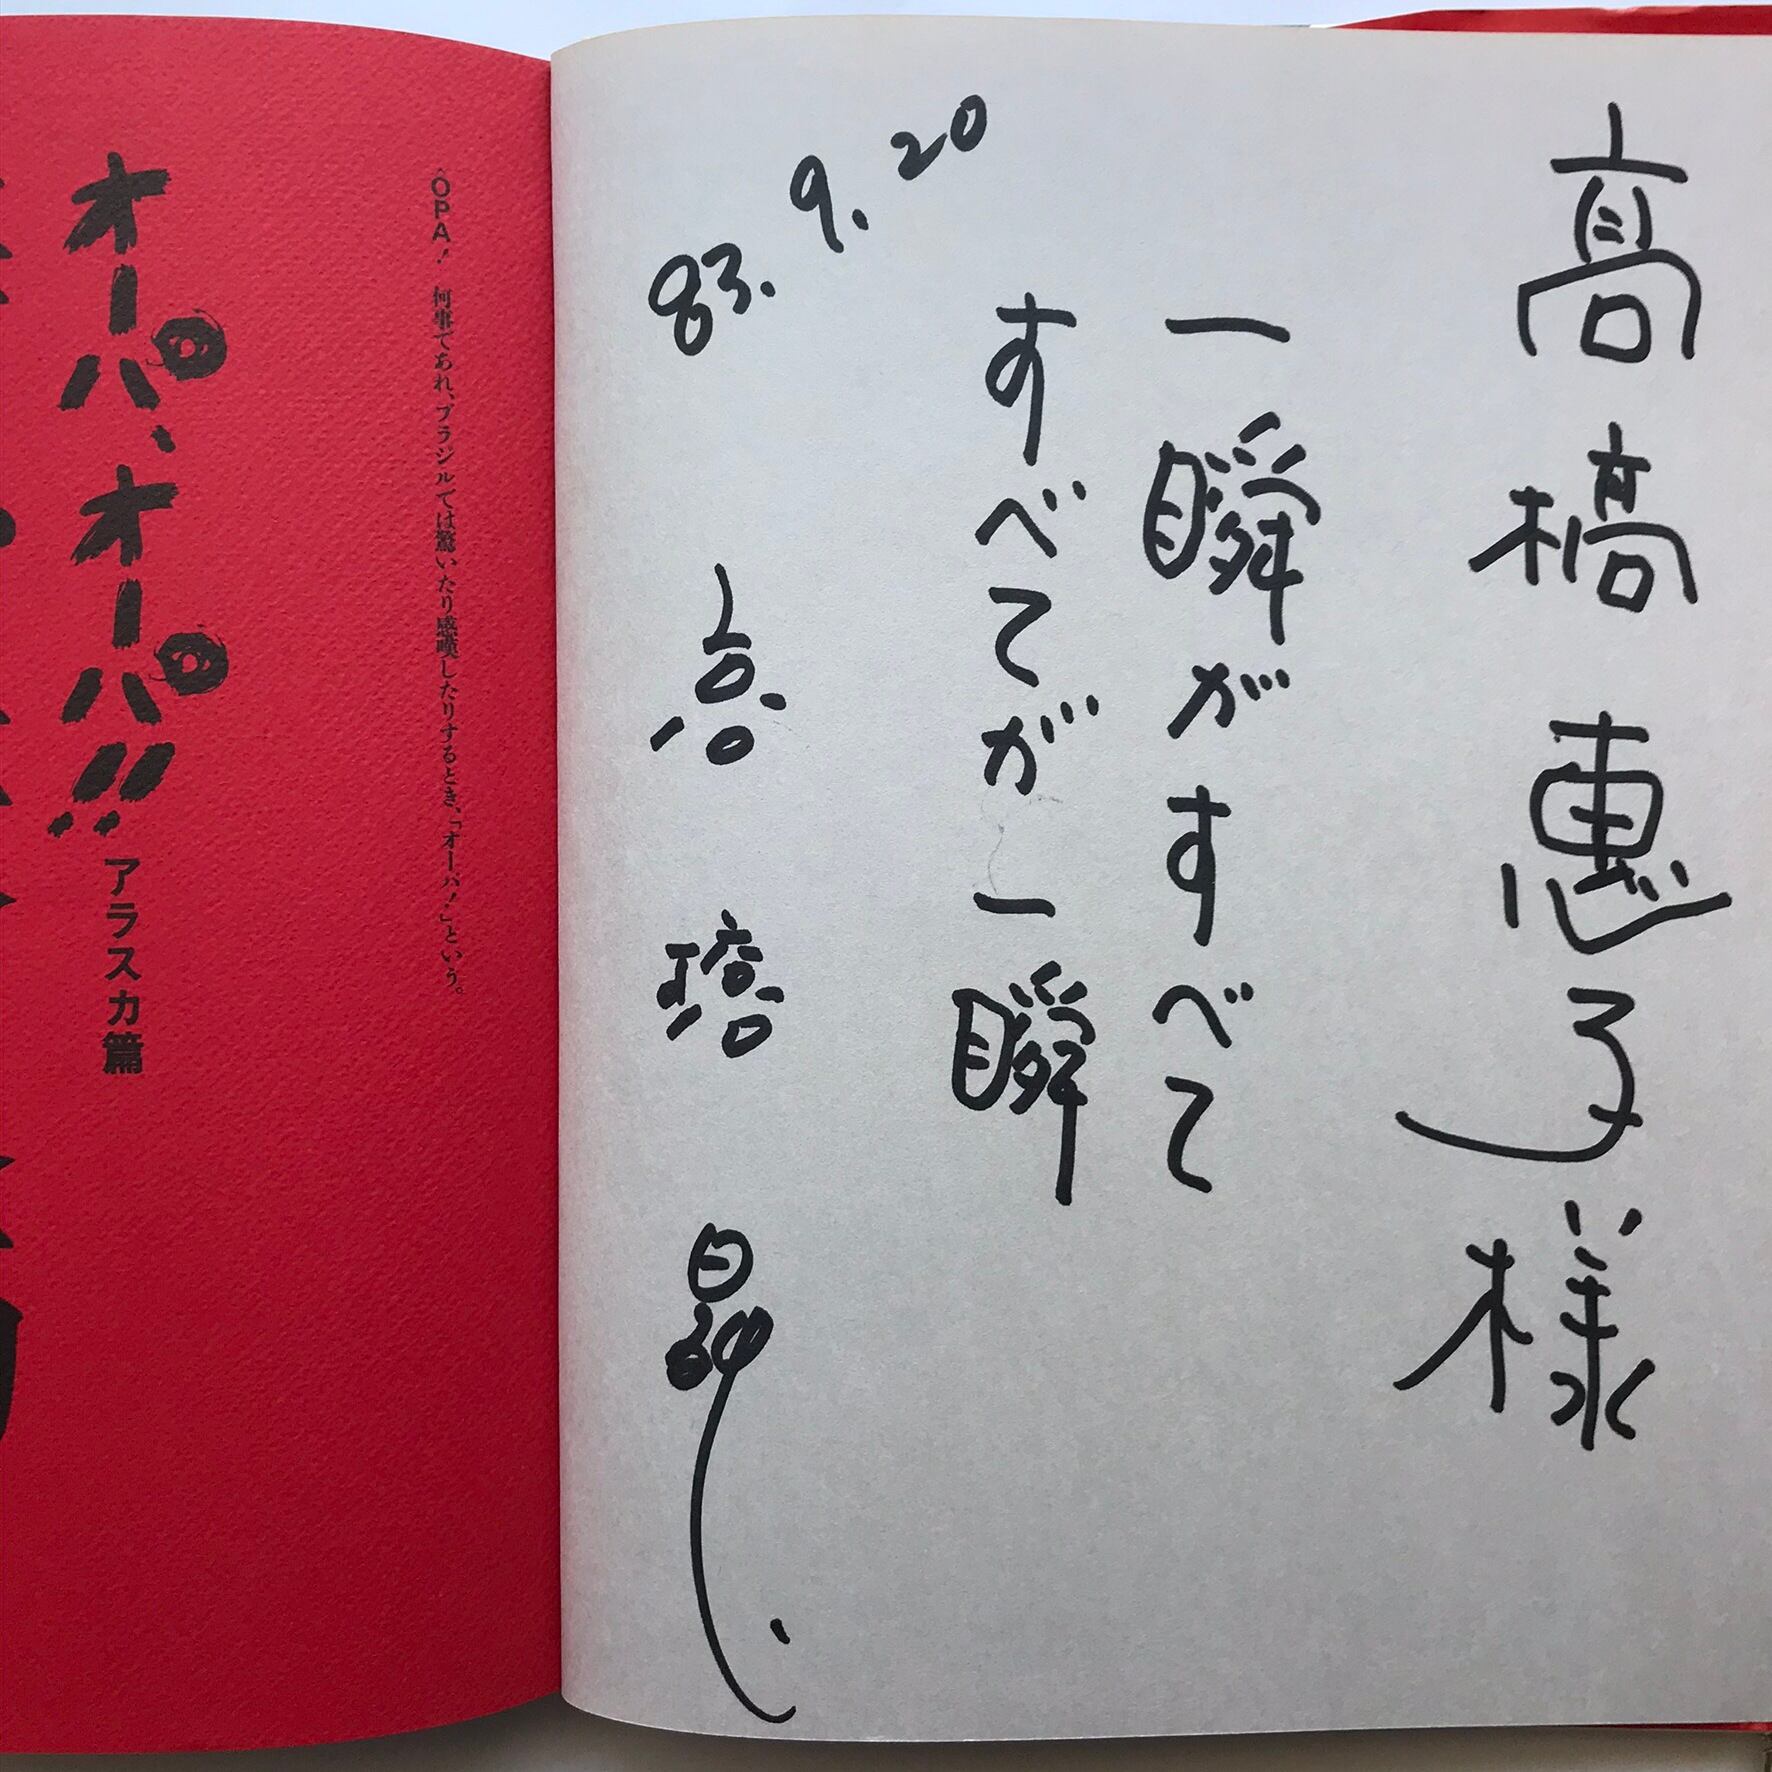 高橋恵子様
一瞬がすべて
すべてが一瞬
83. 9. 20
高橋昇
ÔPA! 何事であれ、ブラジルでは驚いたり感嘆したりするとき、「オーパ!」という。
オーパ、オーパ!! アラスカ篇